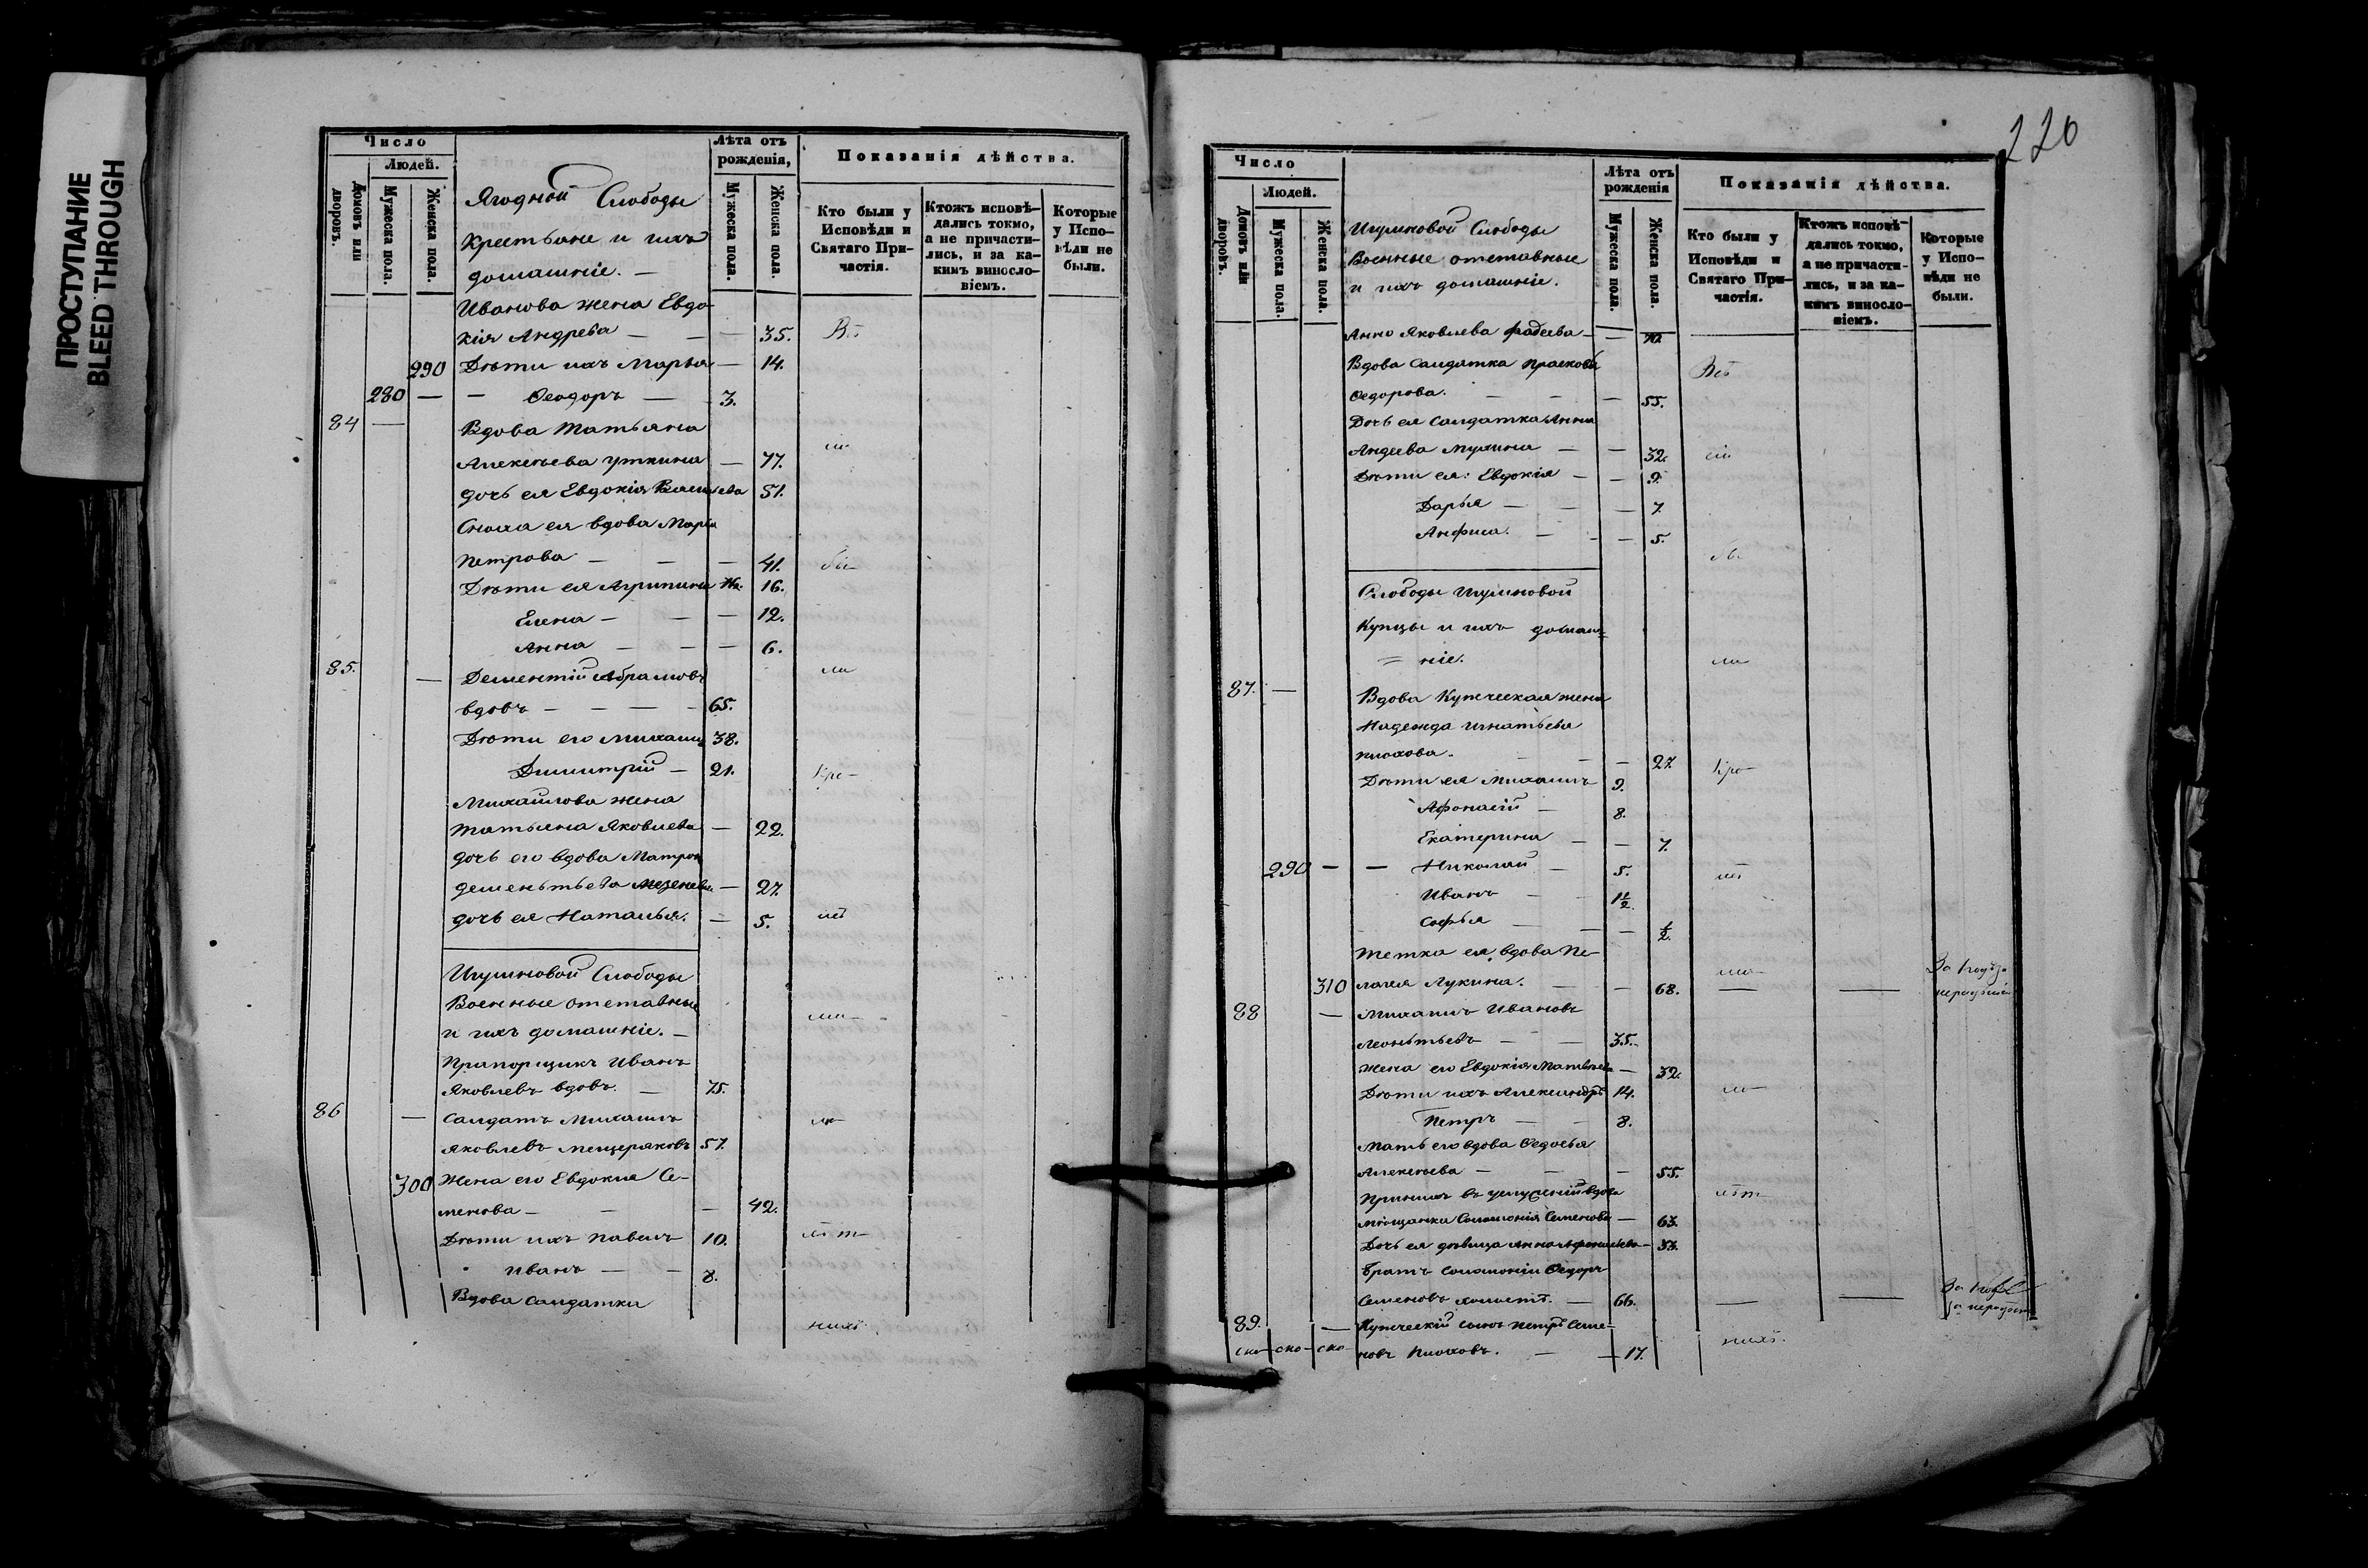 ПРОСТУПАНИЕ
BLEED THROUGH
Число
Людей.
Домовъ или дворовъ.
Мужеска пола.
Женска пола.
Лѣта отъ рожденія,
Мужеска пола.
Женска пола.
Показанія дѣйства.
Кто были у Исповѣди и Святаго Причастія.
Ктожъ исповѣдались токмо, а не причастились, и за какимъ винословіемъ.
Которые у Исповѣди не были.
Ягодной Слободы
Крестьяне и ихъ
домашніе. —
Иванова жена Евдо-
кія Андрева — — — 35. Всѣ
290 Дѣти ихъ Марья — 14.
280 — — Ѳеодоръ — — 3.
84 — Вдова Татьяна
Алексѣева Уткина — 77. сіи
дочь ея Евдокія Васильева 51.
Сноха ея вдова Марія
Петрова — — — 41. бы-
Дѣти ея Агрипина 16.
Елена — — — 12.
Анна — — — 6.
85. — Дементій Абрамовъ ли
вдовъ — — — — 65.
Дѣти его Михаилъ 38.
Димитрій — 21. кро-
Михайлова жена
Татьяна Яковлева — 22.
дочь его вдова Матрона
деменьтьева — 27.
дочь ея Наталья. — 5. мѣ
Игумновой Слободы
Военные отставные
и ихъ домашніе. —
Прапорщикъ Иванъ
Яковлевъ вдовъ. — 75.
86 — Салдатъ Михаилъ
Яковлевъ Мещеряковъ 57.
300 Жена его Евдокія Се-
менова — — — 42.
Дѣти ихъ Павелъ 10. лѣт-
Иванъ — — 8.
Вдова Салдатка
нихъ.
220
Число
Людей.
Домовъ или дворовъ.
Мужеска пола.
Женска пола.
Лѣта отъ рожденія
Мужеска пола.
Женска пола.
Показанія дѣйства.
Кто были у Исповѣди и Святаго Причастія.
Ктожъ исповѣдались токмо, а не причастились, и за какимъ винословіемъ.
Которые у Исповѣди не были.
Игумновой Слободы
Военные отставные
и ихъ домашніе.
Анна Яковлева Фадеева — — 70.
Вдова Салдатка Прасковья Всѣ
Ѳедорова. — — — 55.
Дочь ея Салдатка Анна
Андеева Мухина — — 32. сіи
Дѣти ея: Евдокія — — 9.
Дарья — — — 7.
Анфиса. — — — 5.
бы-
Слободы Игумновой
Купцы и ихъ домаш=
= ніе. ли
87. — Вдова Купческая жена
Надежда Игнатьева
— — — 27. кро-
Дѣти ея Михаилъ 9.
Афонасій — 8.
Екатерина — — 7.
290 — — Николай — 5. мѣ
Иванъ — — 1½.
Софья — — — ½.
Тетка ея, вдова Пе-
310 лагея Лукина. — — 68. — — За
88 — Михаилъ Ивановъ
Леонтьевъ — — 35.
Жена его Евдокія Матвѣева — 32.
Дѣти ихъ Александръ 14.
Петръ — — 8.
Мать его вдова Ѳедосья
Алексѣева — — — 55.
вдова лѣт-
мѣщанка Соломонія Семенова — 63.
Дочь ея дѣвица Анна Афонасьева — 33.
Братъ Соломоніи Ѳедоръ
Семеновъ холостъ. — 66. — — За
89. — Купческій сынъ Петръ Семе-
новъ — — 17. нихъ.